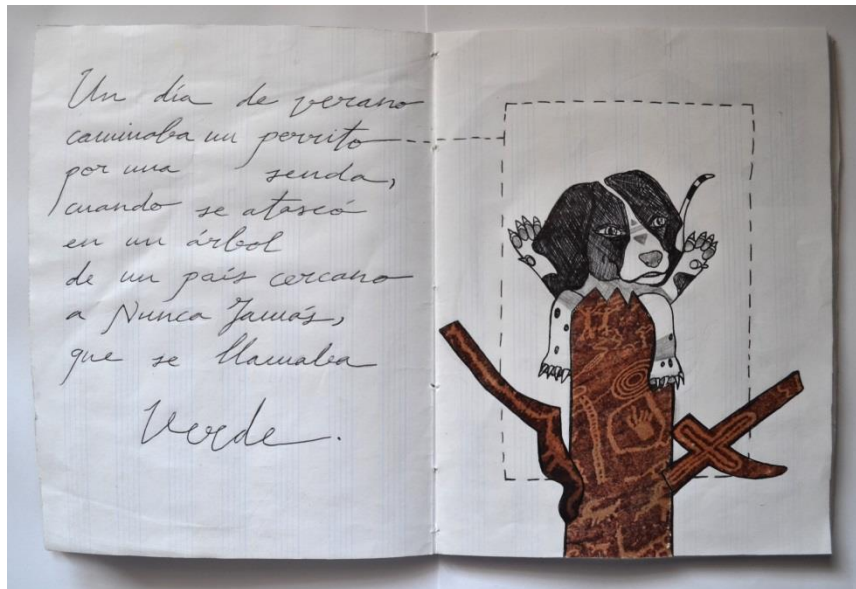 Un día de verano
caminaba un perrito
por una senda,
cuando se atascó
en un árbol
de un país cercano
a Nunca Jamás,
que se llamaba
Verde.